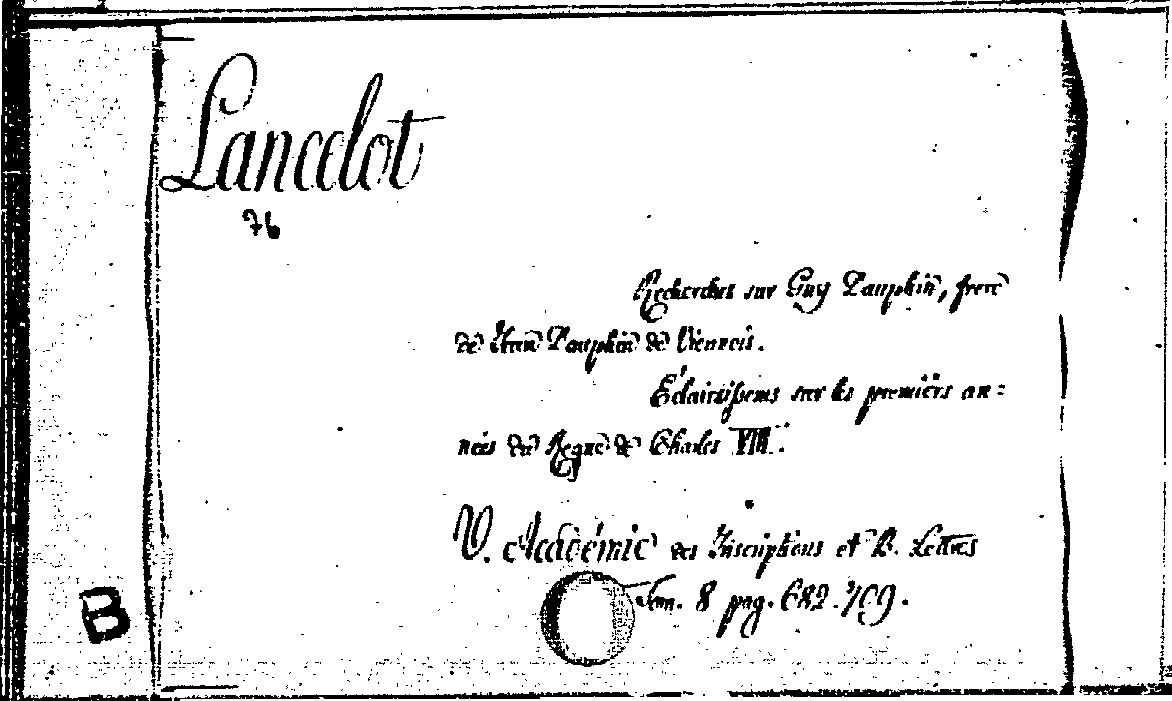 Lancelot
76
Recherches sur Guy Dauphin, frere
de Jean Dauphin de Viennois.
Eclaircissemens sur les premieres an=
nées du Regne de Charles VIII.
V. Académie des Inscriptions et B. Lettres
Tom. 8 pag. 682.709.
B